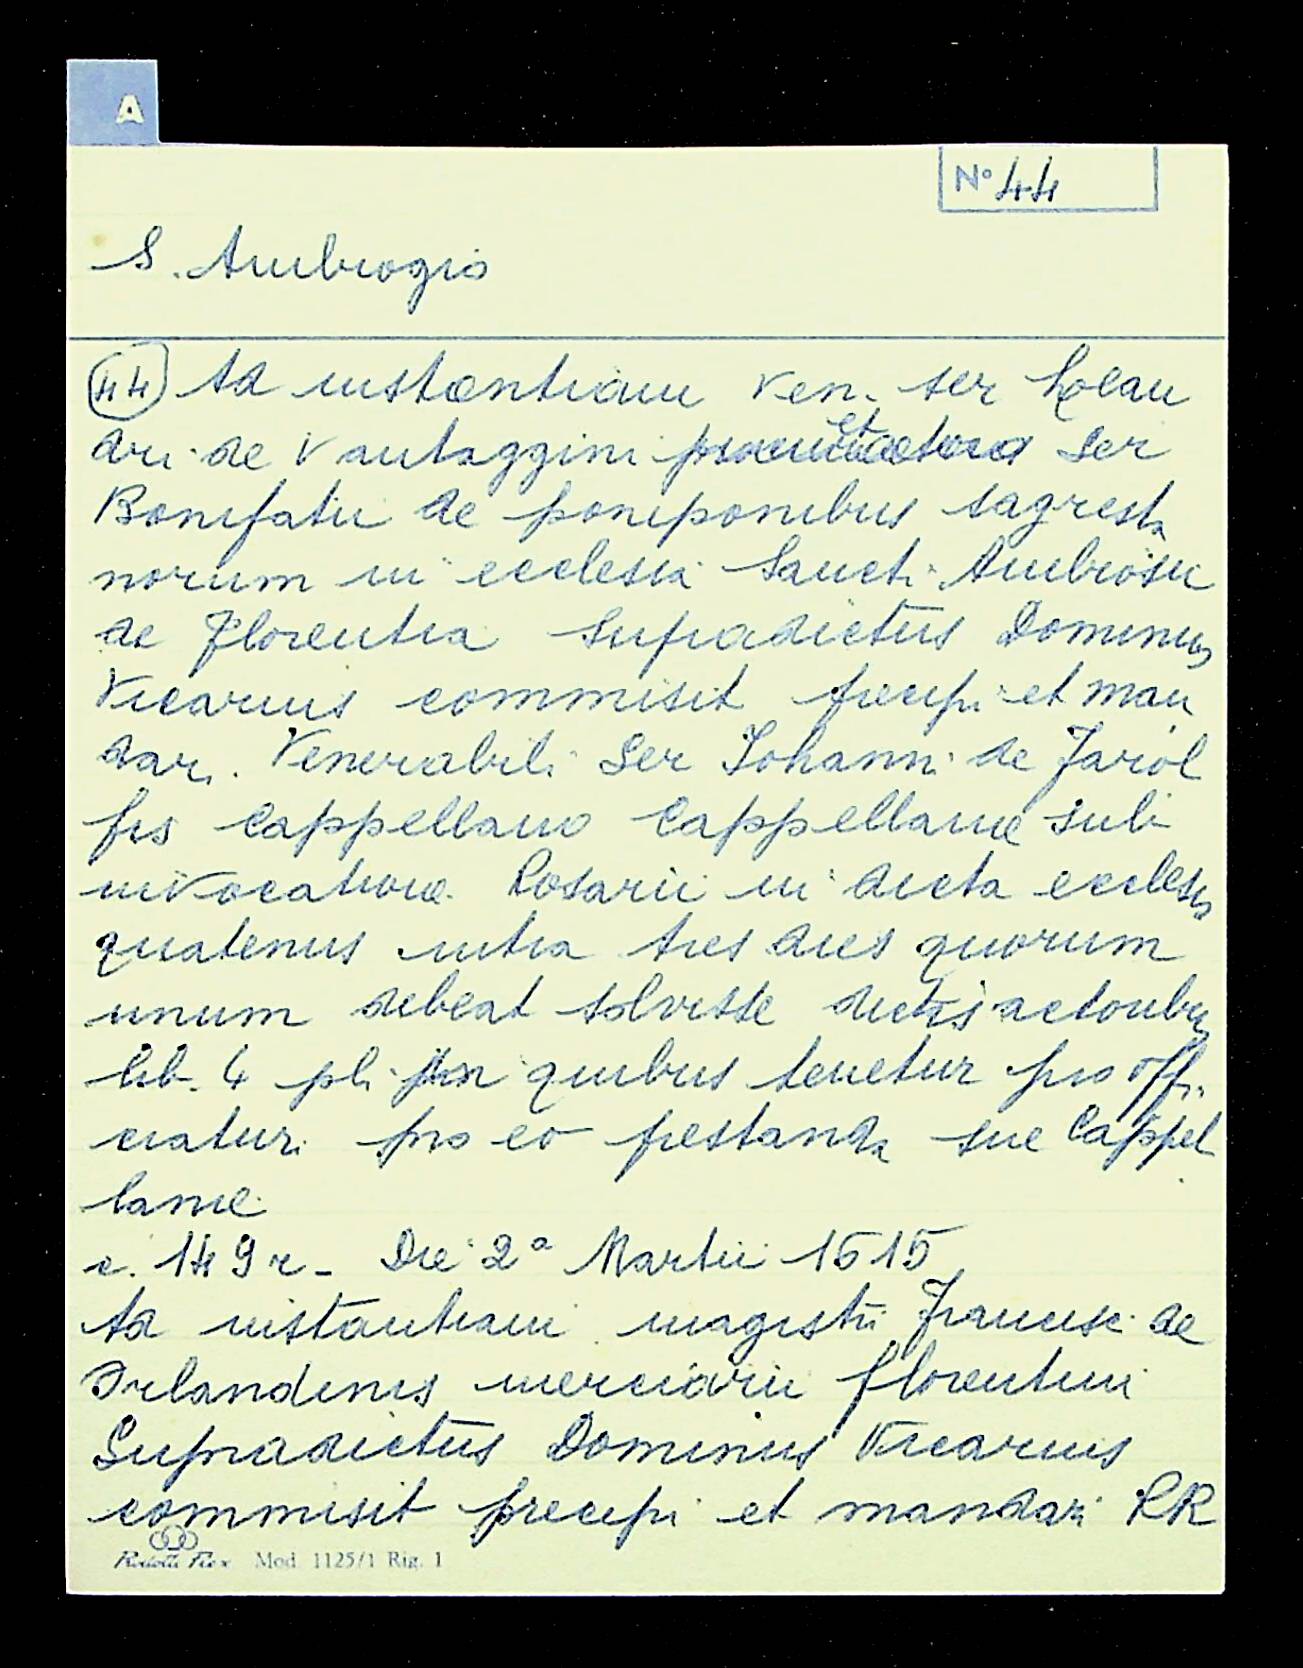 A
N° 44
S. Ambrogio
44 Ad instantiam Ven. ser Holan
dri de Vantaggini et Ser
Bonifatii de ponponibus sagresta
norum in ecclesia Sancti Ambrosii
de Florentia Supradictus Dominus
Vicarius commisit precipi et man
dari Venerabili Ser Johanni de Jarol
fis Cappellano Cappellanie sub
invocatione Rosarii in dicta ecclesia
quatenus intra tres dies quorum
unum debeat solvisse dictis actoribus
lib. 4 pli quibus tenetur pro offi
ciaturi pro eo prestanda sue Cappel
lanie
c. 149 r - Die 2ª Martii 1515
Ad instantiam magistri Francisci de
Orlandinis merciarii florentini
Supradictus Dominus Vicarius
commisit precipi et mandari RR
Mod. 1125/1 Rig. 1